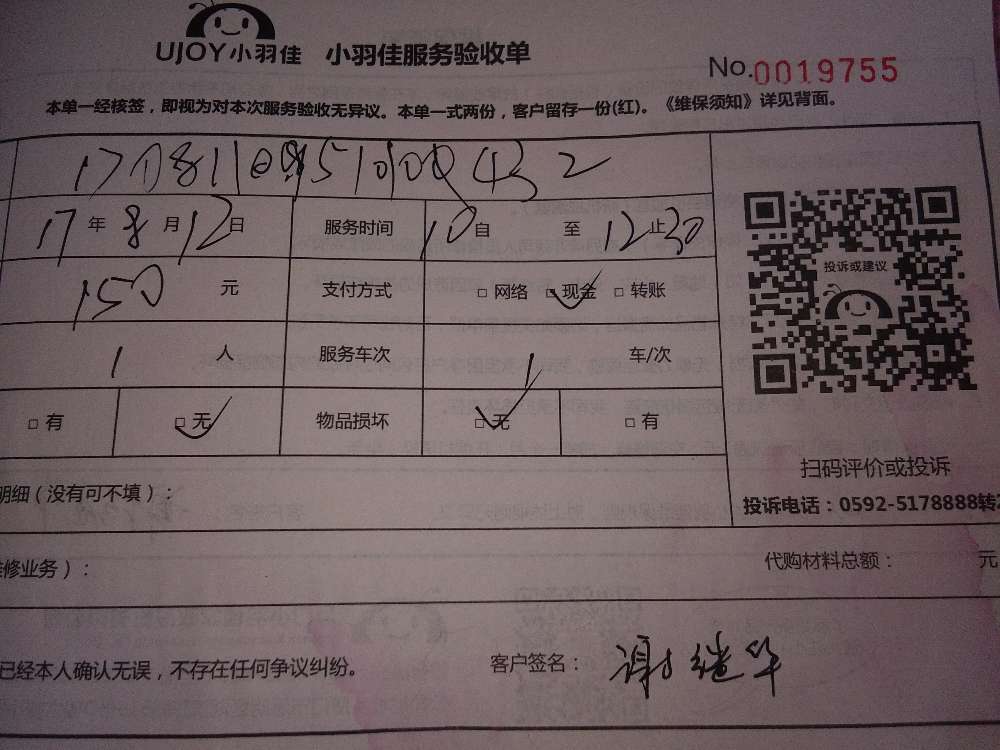 UJOY小羽佳 小羽佳服务验收单
No.0019755
本单一经核签，即视为对本次服务验收无异议。本单一式两份，客户留存一份(红)。《维保须知》详见背面。
17年8月12日 服务时间 10自 至 12止30
150 元 支付方式 □网络 □现金 □转账
投诉或建议
1 人 服务车次 1 车/次
□有 □无 物品损坏 □无 □有
扫码评价或投诉
明细（没有可不填）：
投诉电话：0592-5178888转2
修业务）： 代购材料总额： 元
已经本人确认无误，不存在任何争议纠纷。 客户签名：谢继华